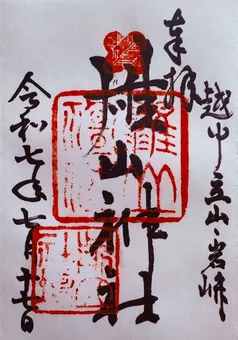 奉拝
越中立山岩峅
雄山神社
令和七年七月廿七日